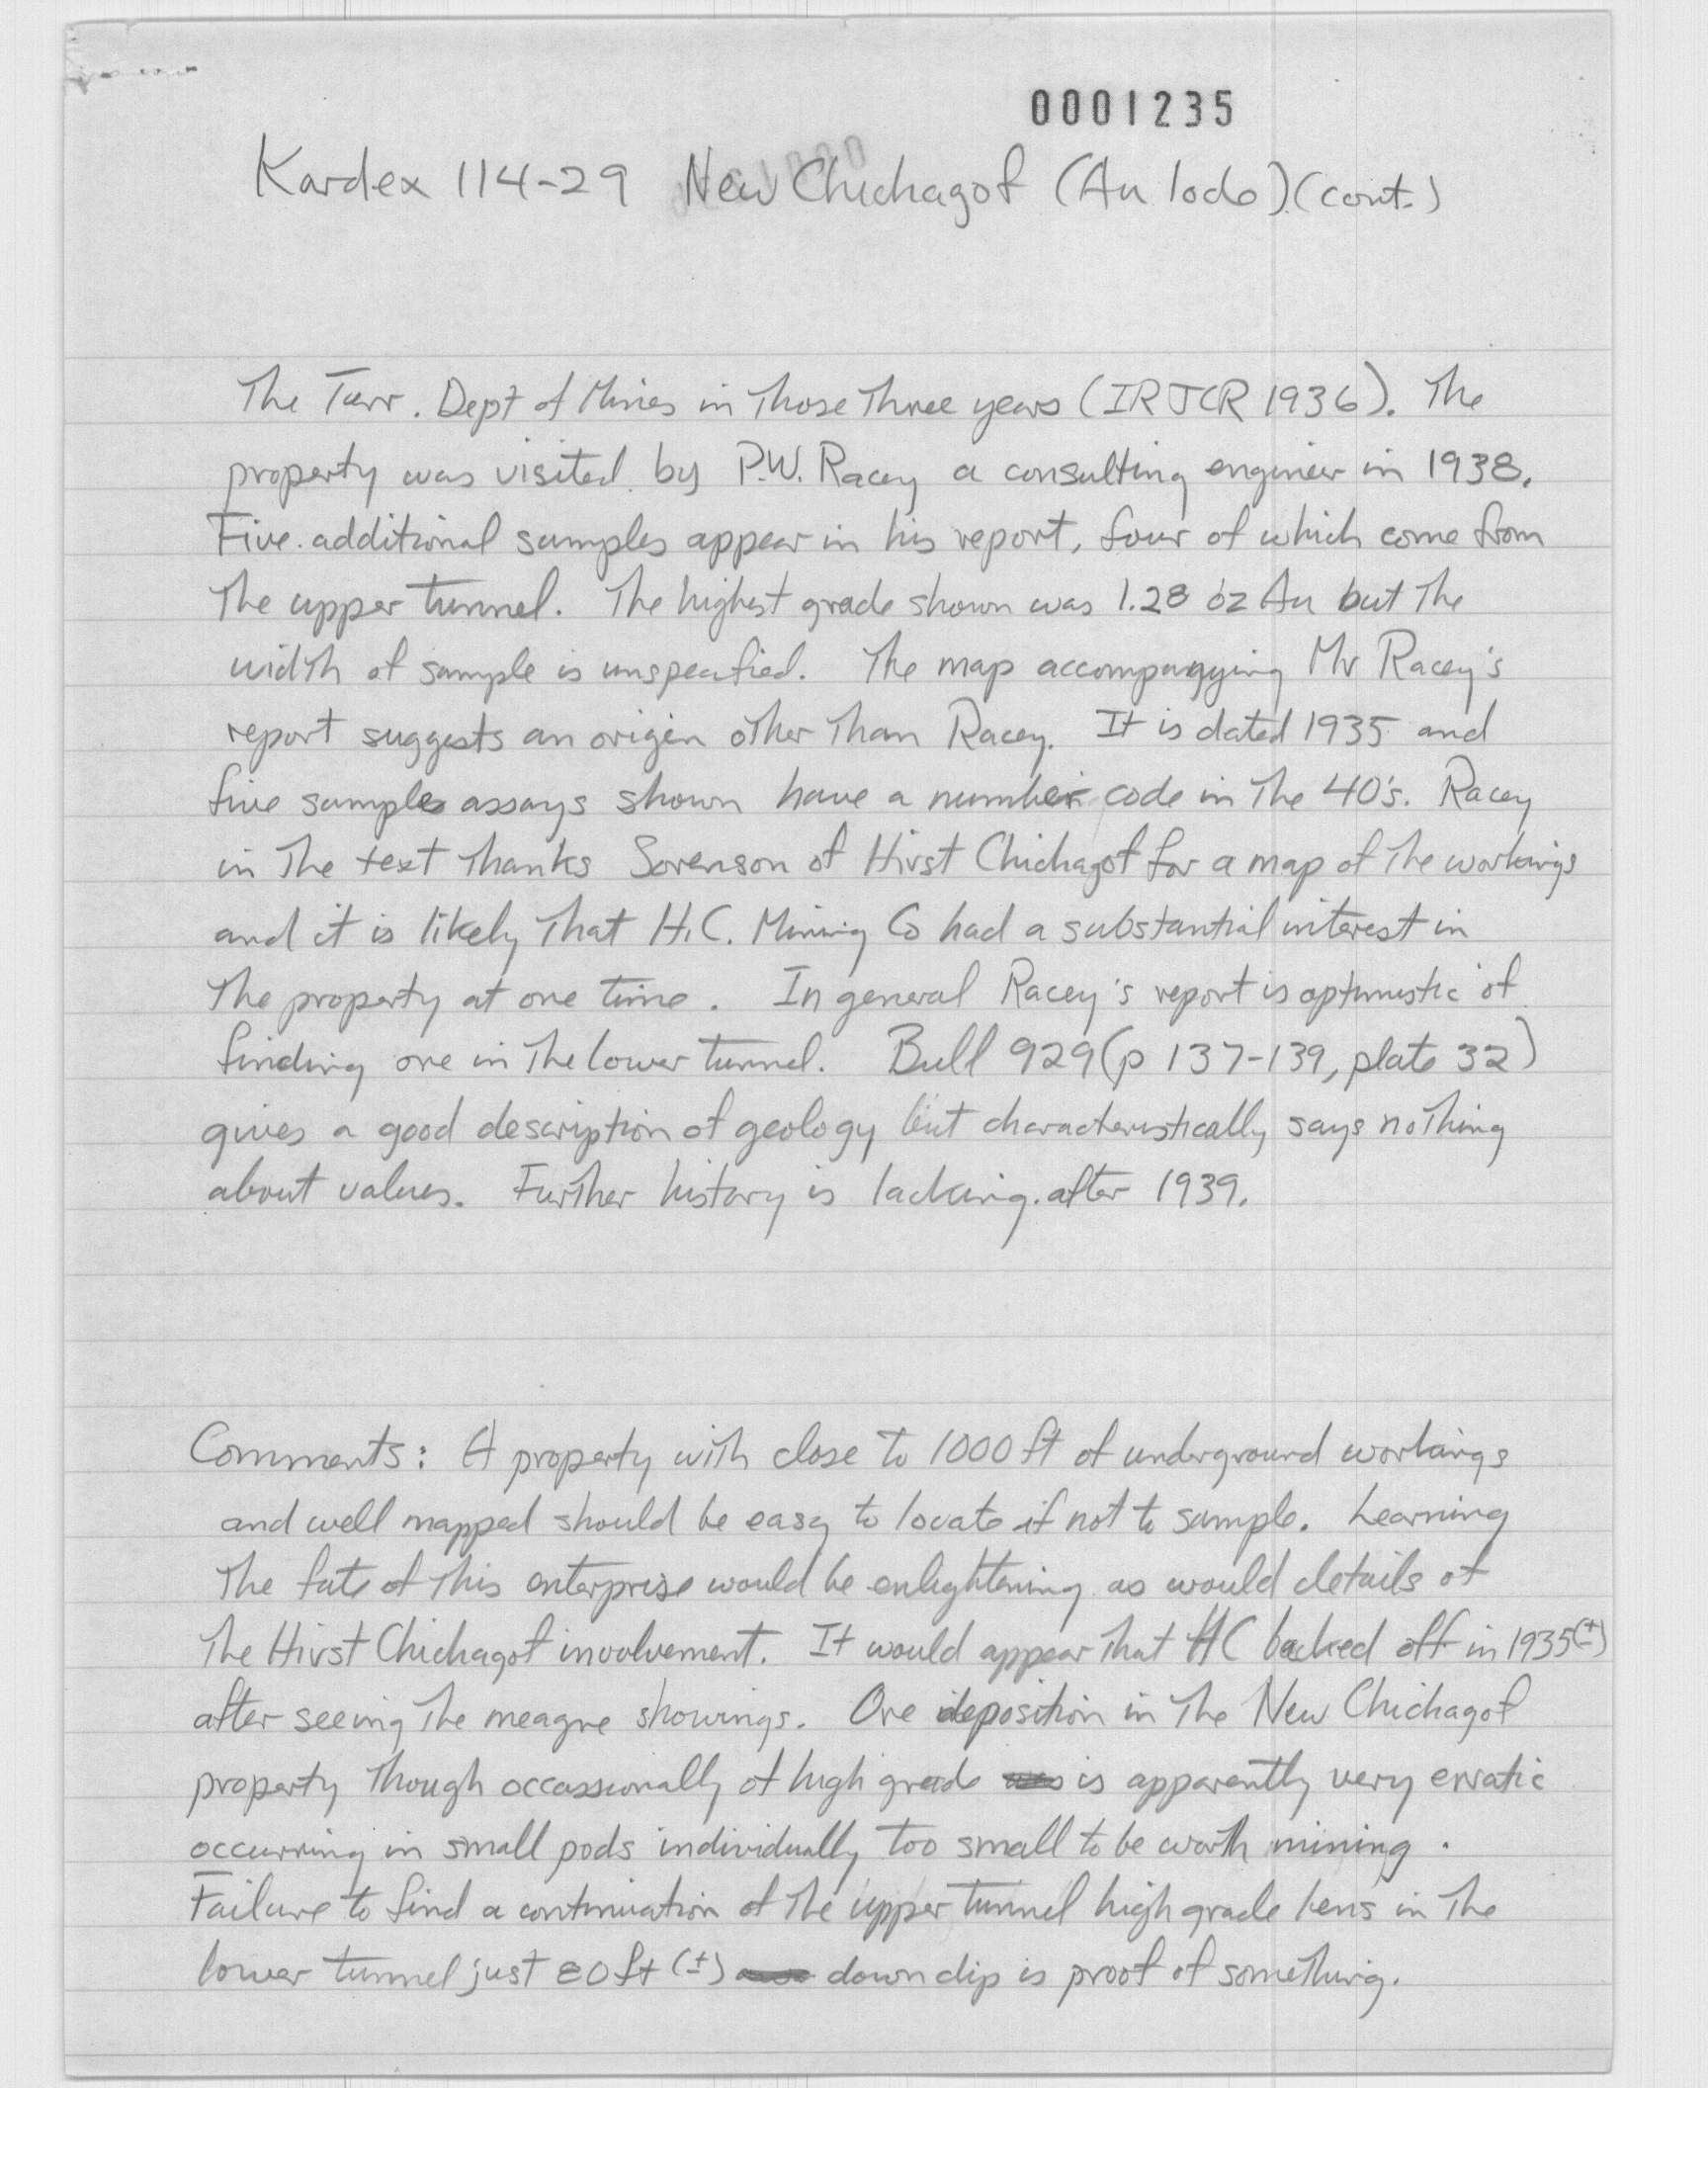 0001235
Kardex 114-29 New Chichagof (Au lode) (cont.)
The Terr. Dept of Mines in those three years (IR JCR 1936). The
property was visited by P.W. Racey a consulting engineer in 1938.
Five additional samples appear in his report, four of which come from
the upper tunnel. The highest grade shown was 1.28 oz Au but the
width of sample is unspecified. The map accompanying Mr Racey's
report suggests an origin other than Racey. It is dated 1935 and
five sample assays shown have a number code in the 40's. Racey
in the text thanks Sorenson of Hirst Chichagof for a map of the workings
and it is likely that H.C. Mining Co had a substantial interest in
the property at one time. In general Racey's report is optimistic of
finding ore in the lower tunnel. Bull 929 (p 137-139, plate 32)
gives a good description of geology but characteristically says nothing
about values. Further history is lacking after 1939.
Comments: A property with close to 1000 ft of underground workings
and well mapped should be easy to locate if not to sample. Learning
the fate of this enterprise would be enlightening as would details of
the Hirst Chichagof involvement. It would appear that HC backed off in 1935(±)
after seeing the meagre showings. Ore deposition in the New Chichagof
property though occassionally of high grade is apparently very erratic
occurring in small pods individually too small to be worth mining.
Failure to find a continuation of the upper tunnel high grade lens in the
lower tunnel just 80 ft (±) down dip is proof of something.